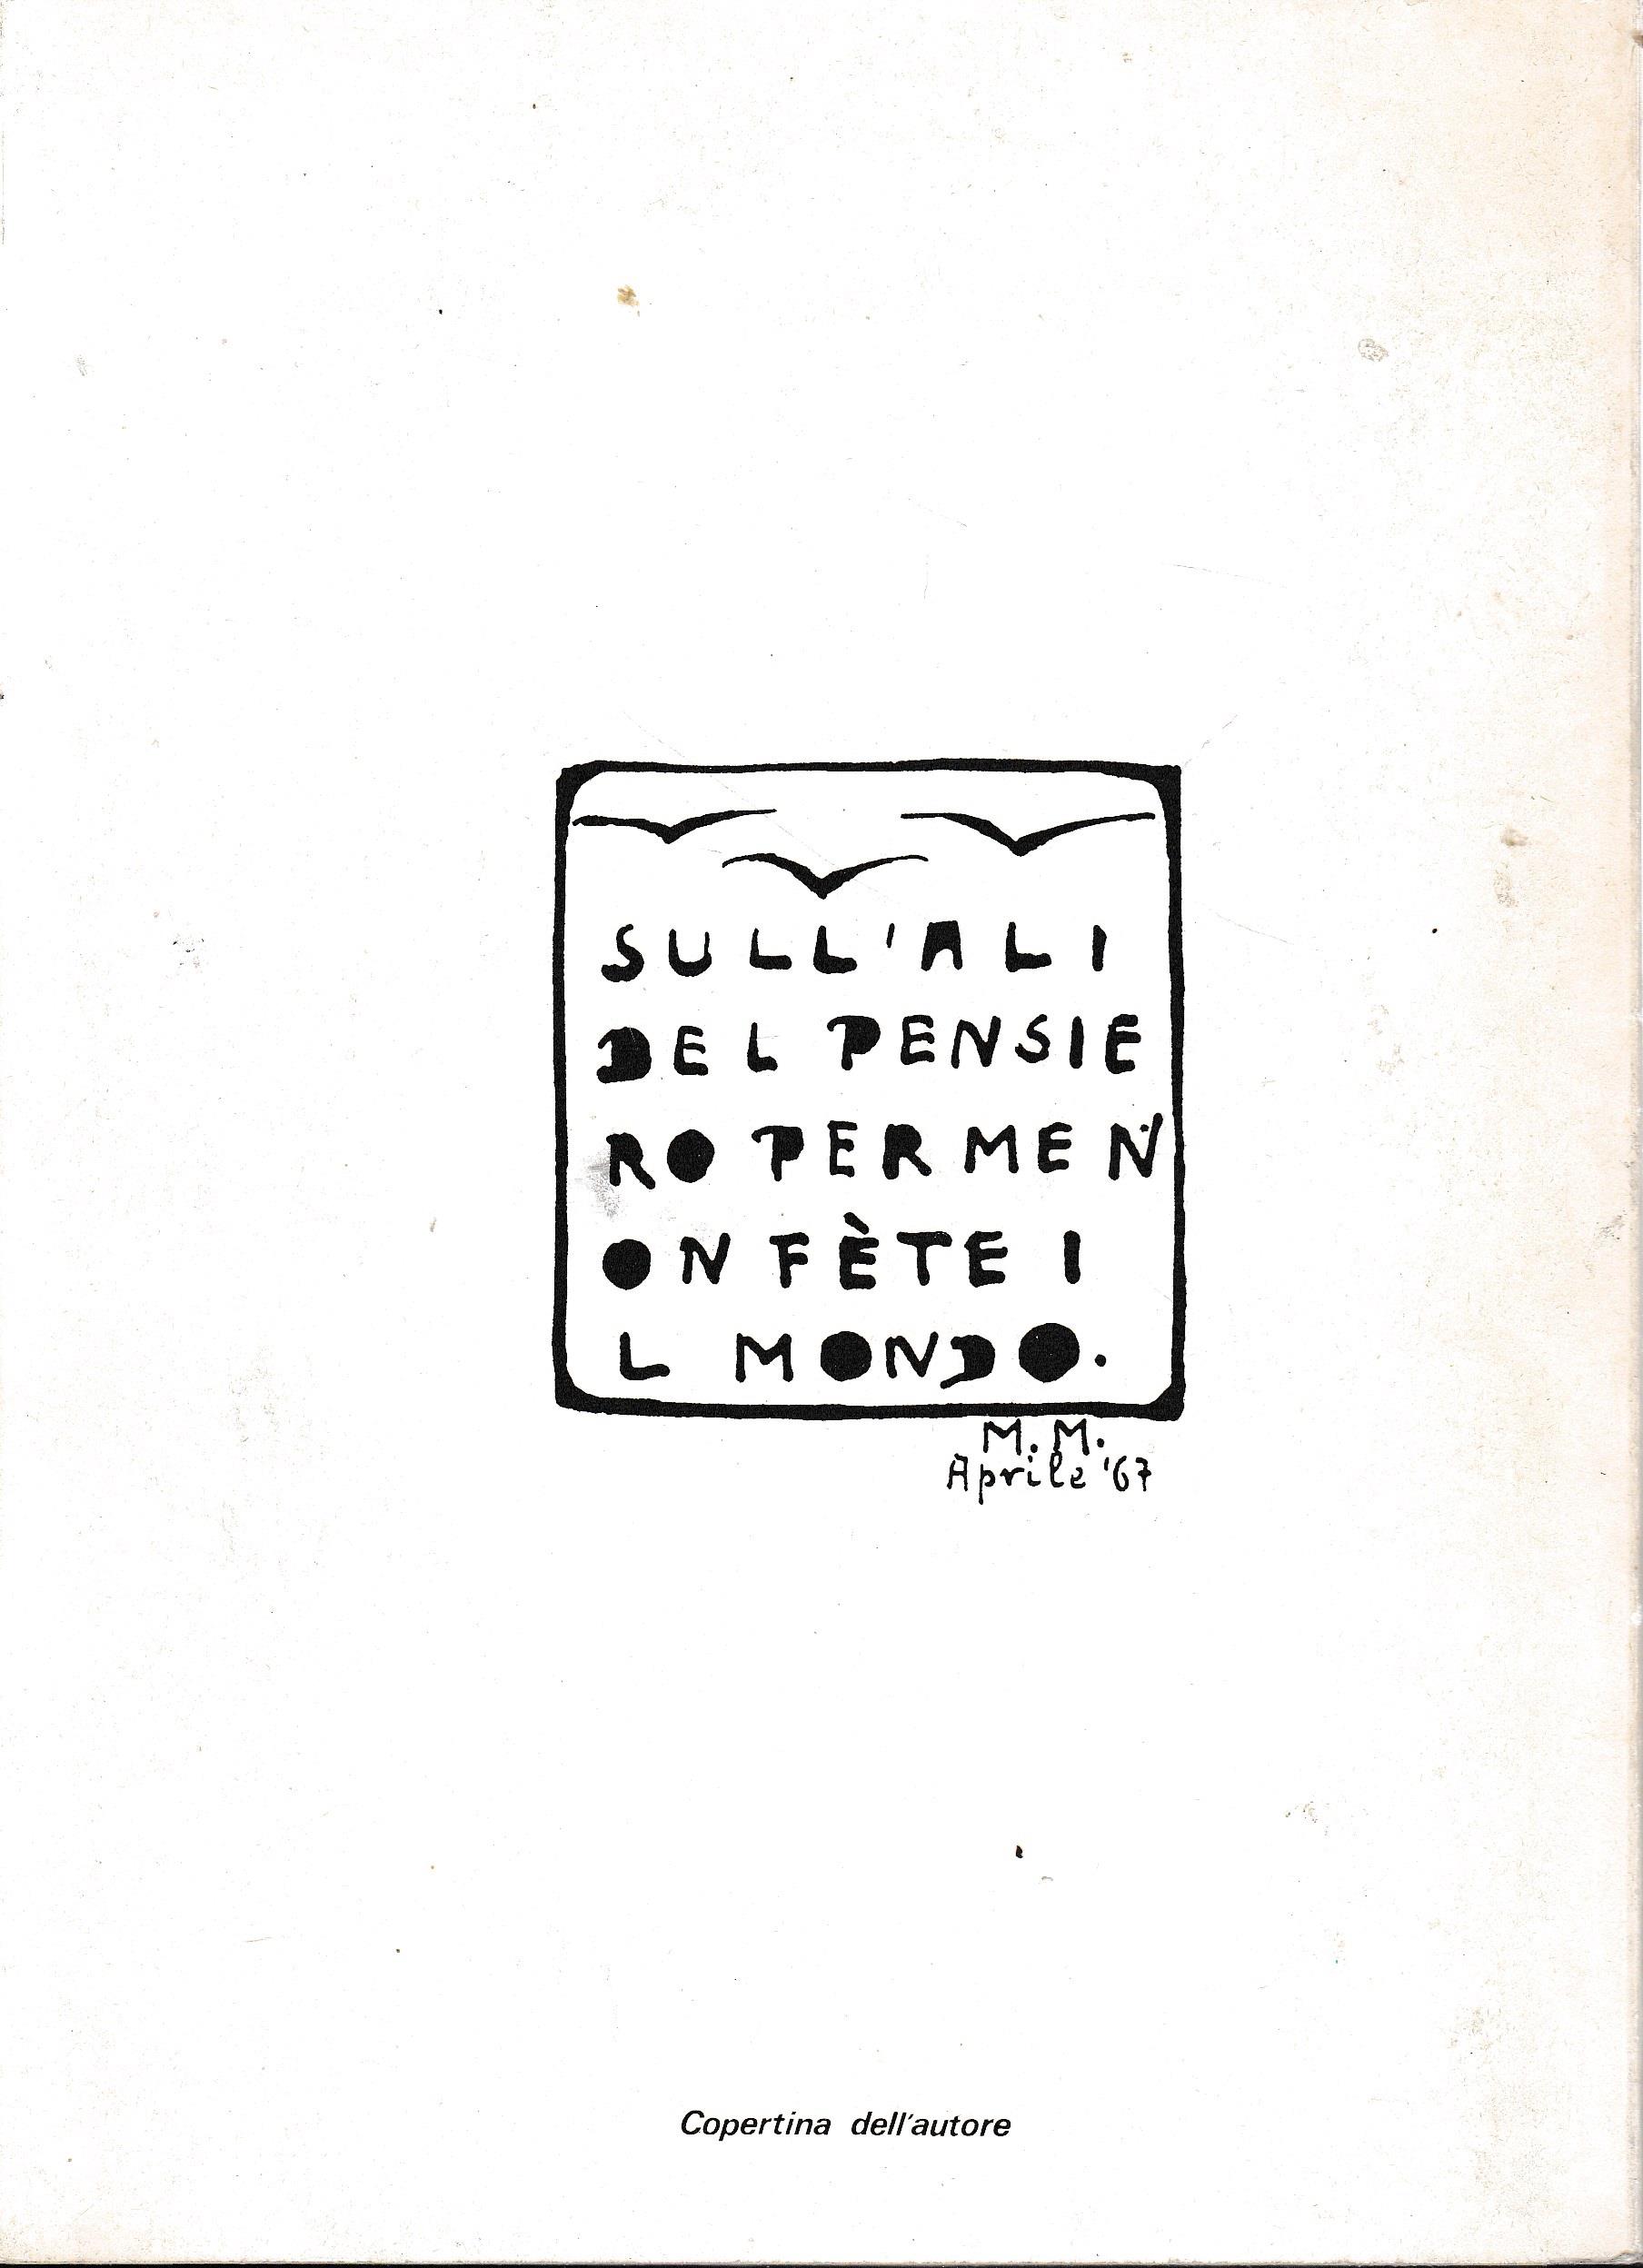 SULL'ALI
DEL PENSIE
RO PER ME N
ON FÈTE I
L MONDO.
M. M.
Aprile '67
Copertina dell'autore